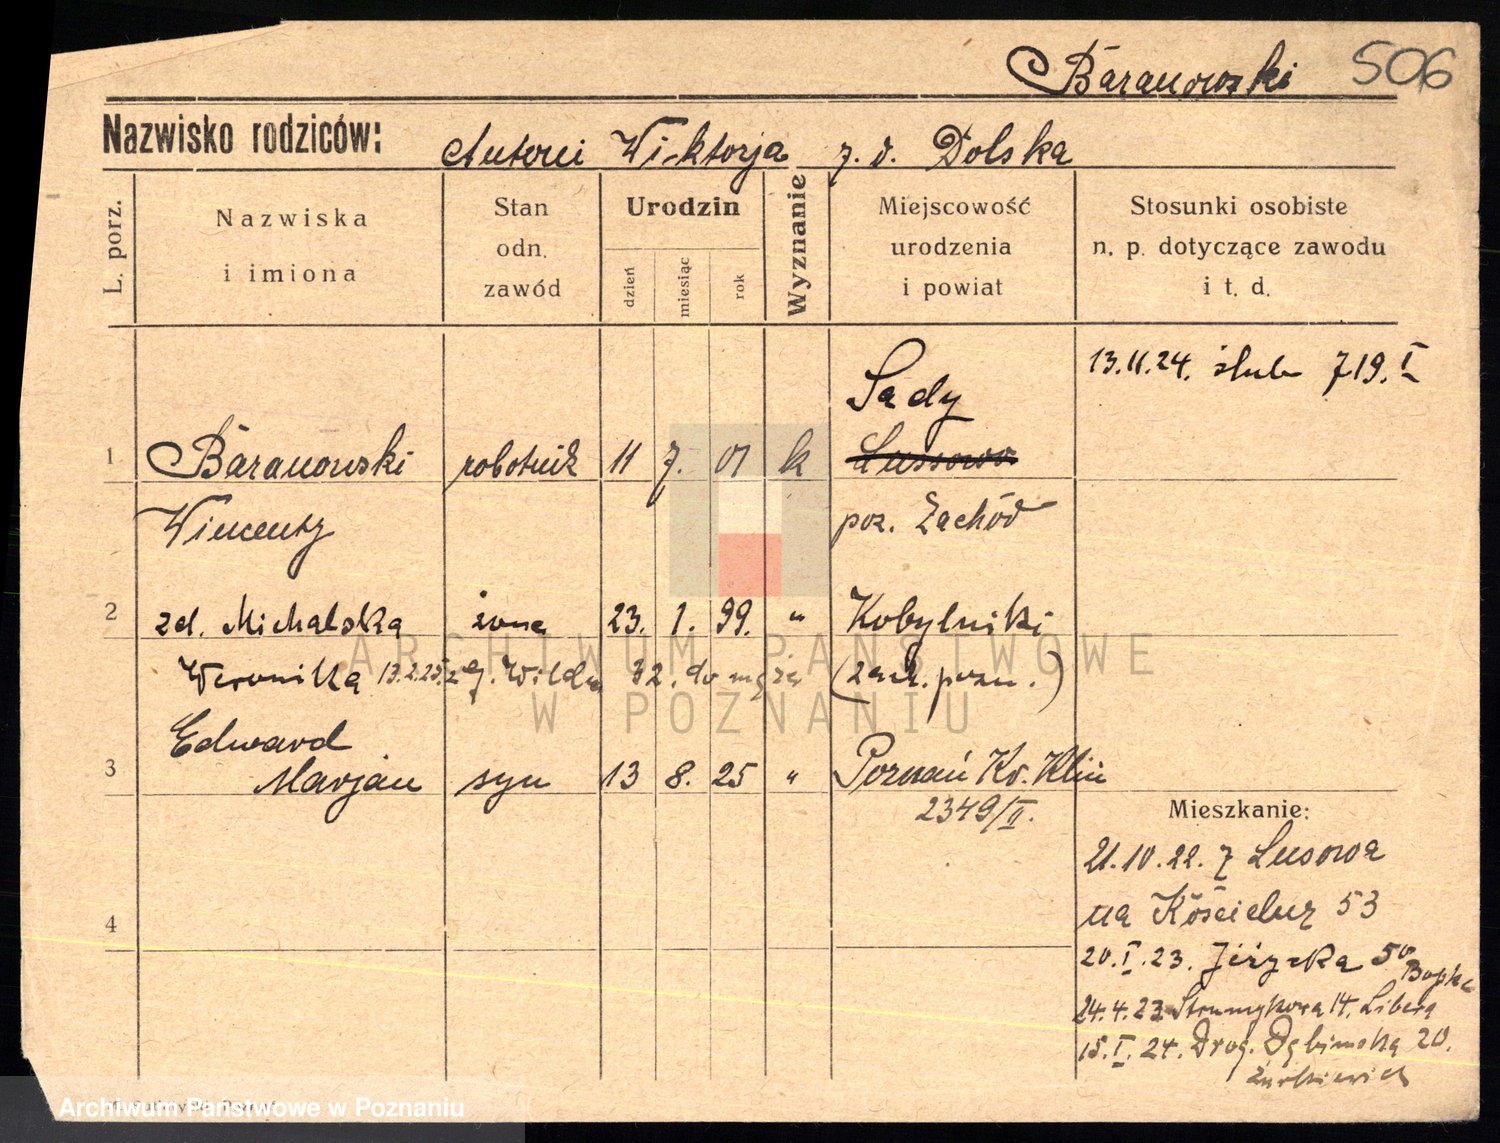 Baranowski 506
Nazwisko rodziców: Antoni Wiktorja z. d. Dolska
L. porz.
Nazwiska
i imiona
Stan
odn.
zawód
Urodzin
dzień
miesiąc
rok
Wyznanie
Miejscowość
urodzenia
i powiat
Stosunki osobiste
n. p. dotyczące zawodu
i t. d.
13.11.24. ślub 719.I
Sady
1 Baranowski robotnik 11 7. 01 k Lussowo
Wincenty poz. Zachód
2 zd. Michalska żona 23. 1. 99. " Kobylniki
Weronika 13.2.25. Wilda 32. do męża (zach. pozn.)
Edward
3 Marjan syn 13 8. 25 " Poznań Kr. Klin
2349/II.
Mieszkanie:
21.10.22. z Lusowa
na Kościelnę 53
4
20.I.23. Jeżycka 50
24.4.23 Strumykowa 14. Libera
15.I.24. Drog. Dębinska 20.
ARCHIWUM PAŃSTWOWE
W POZNANIU
Archiwum Państwowe w Poznaniu